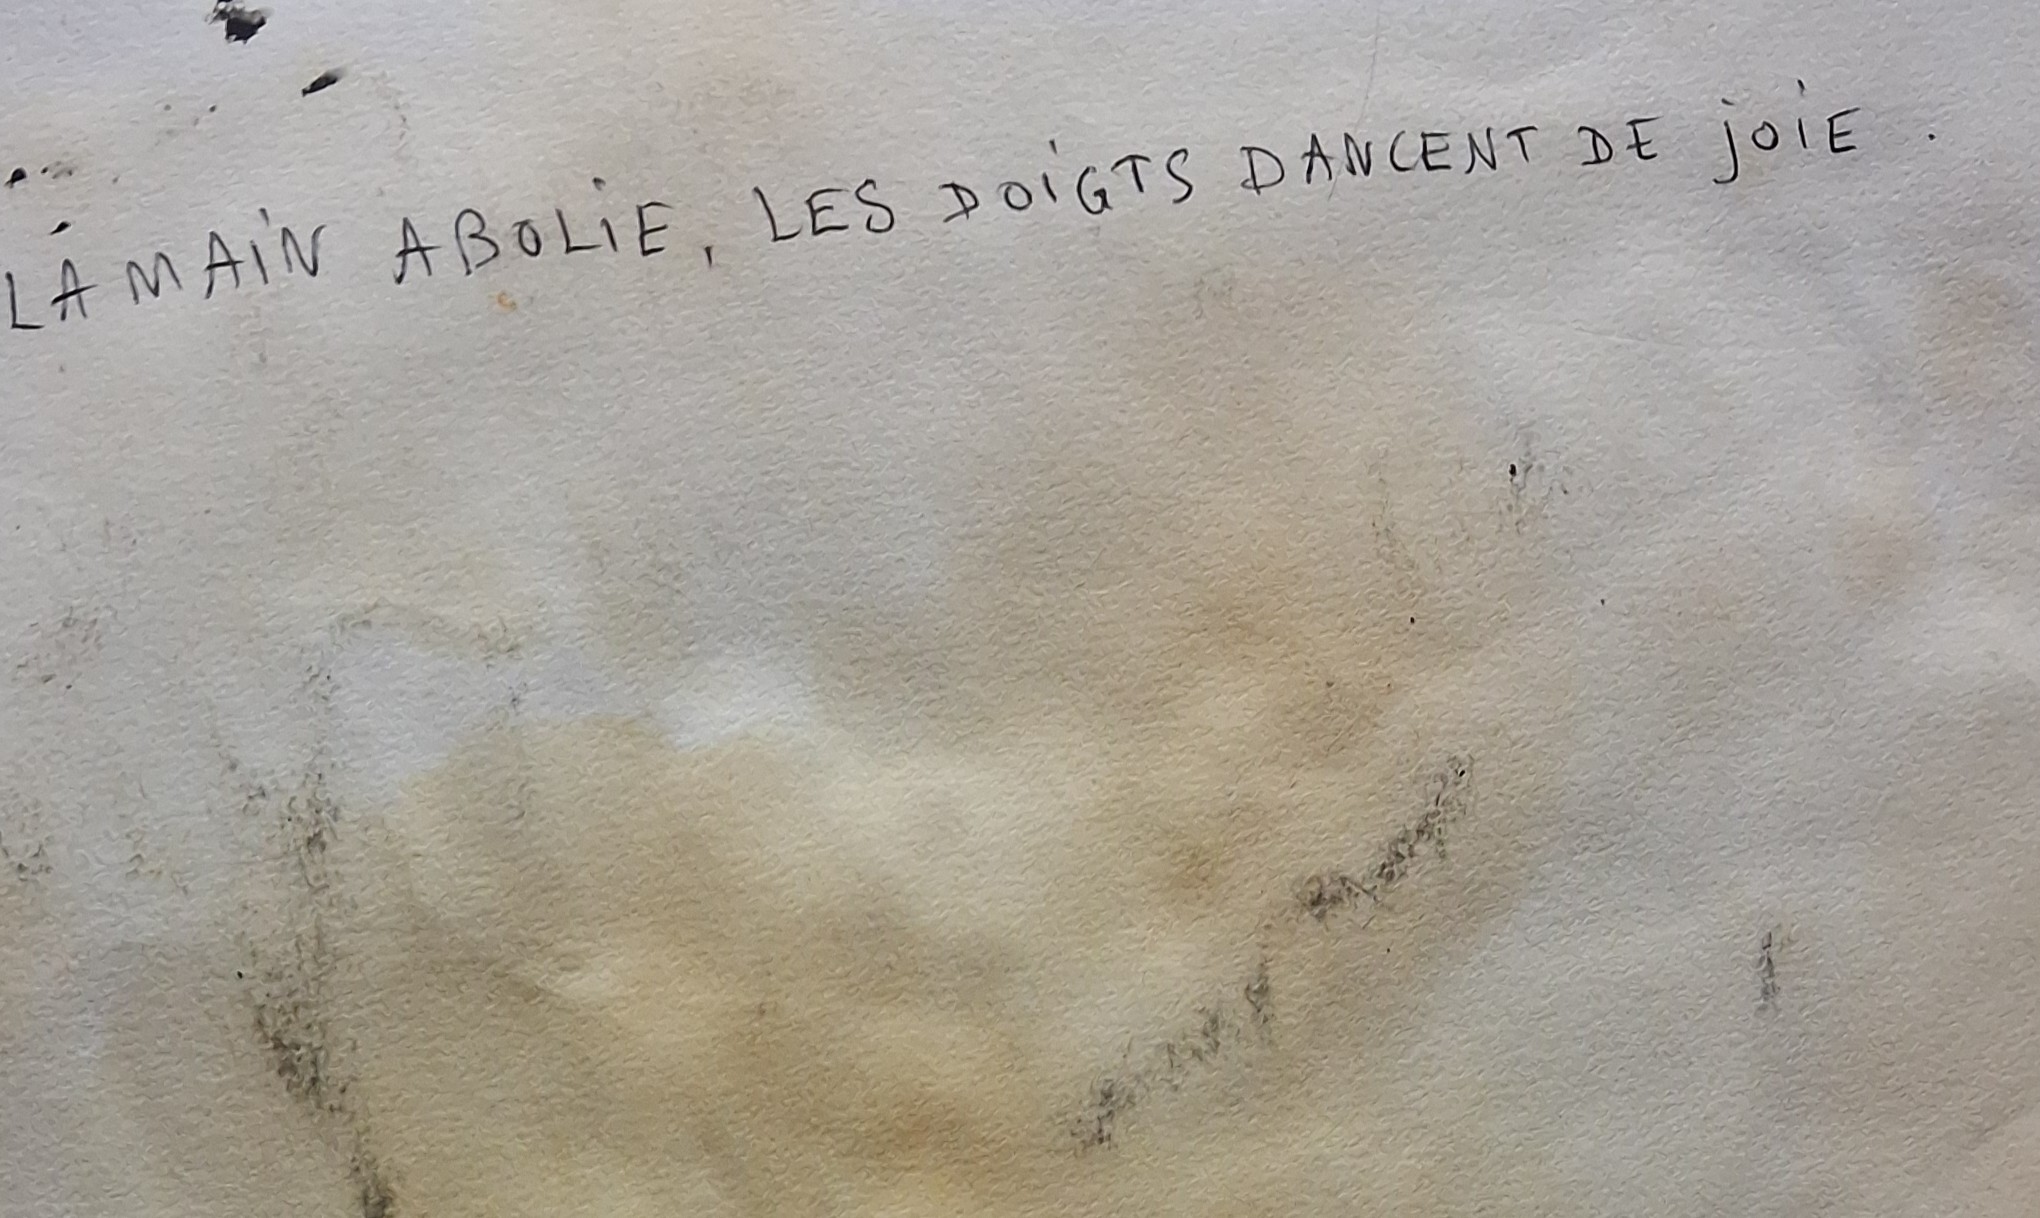 LA MAiN ABOLiE, LES DOiGTS DANCENT DE jOiE.